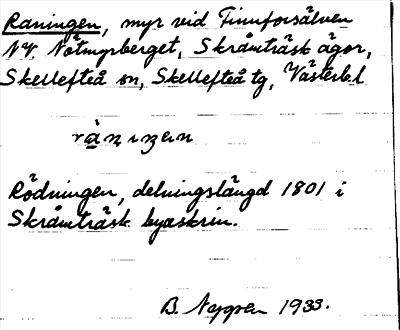 Raningen, myr vid Finnforsälven
NV. Nötmyrberget, Skråmträsk ägor,
Skellefteå sn, Skellefteå tg, Västerb. l
rånıŋen
Rödningen, delningslängd 1801 i
Skråmträsk byaskrin.
B. Nygren 1933.